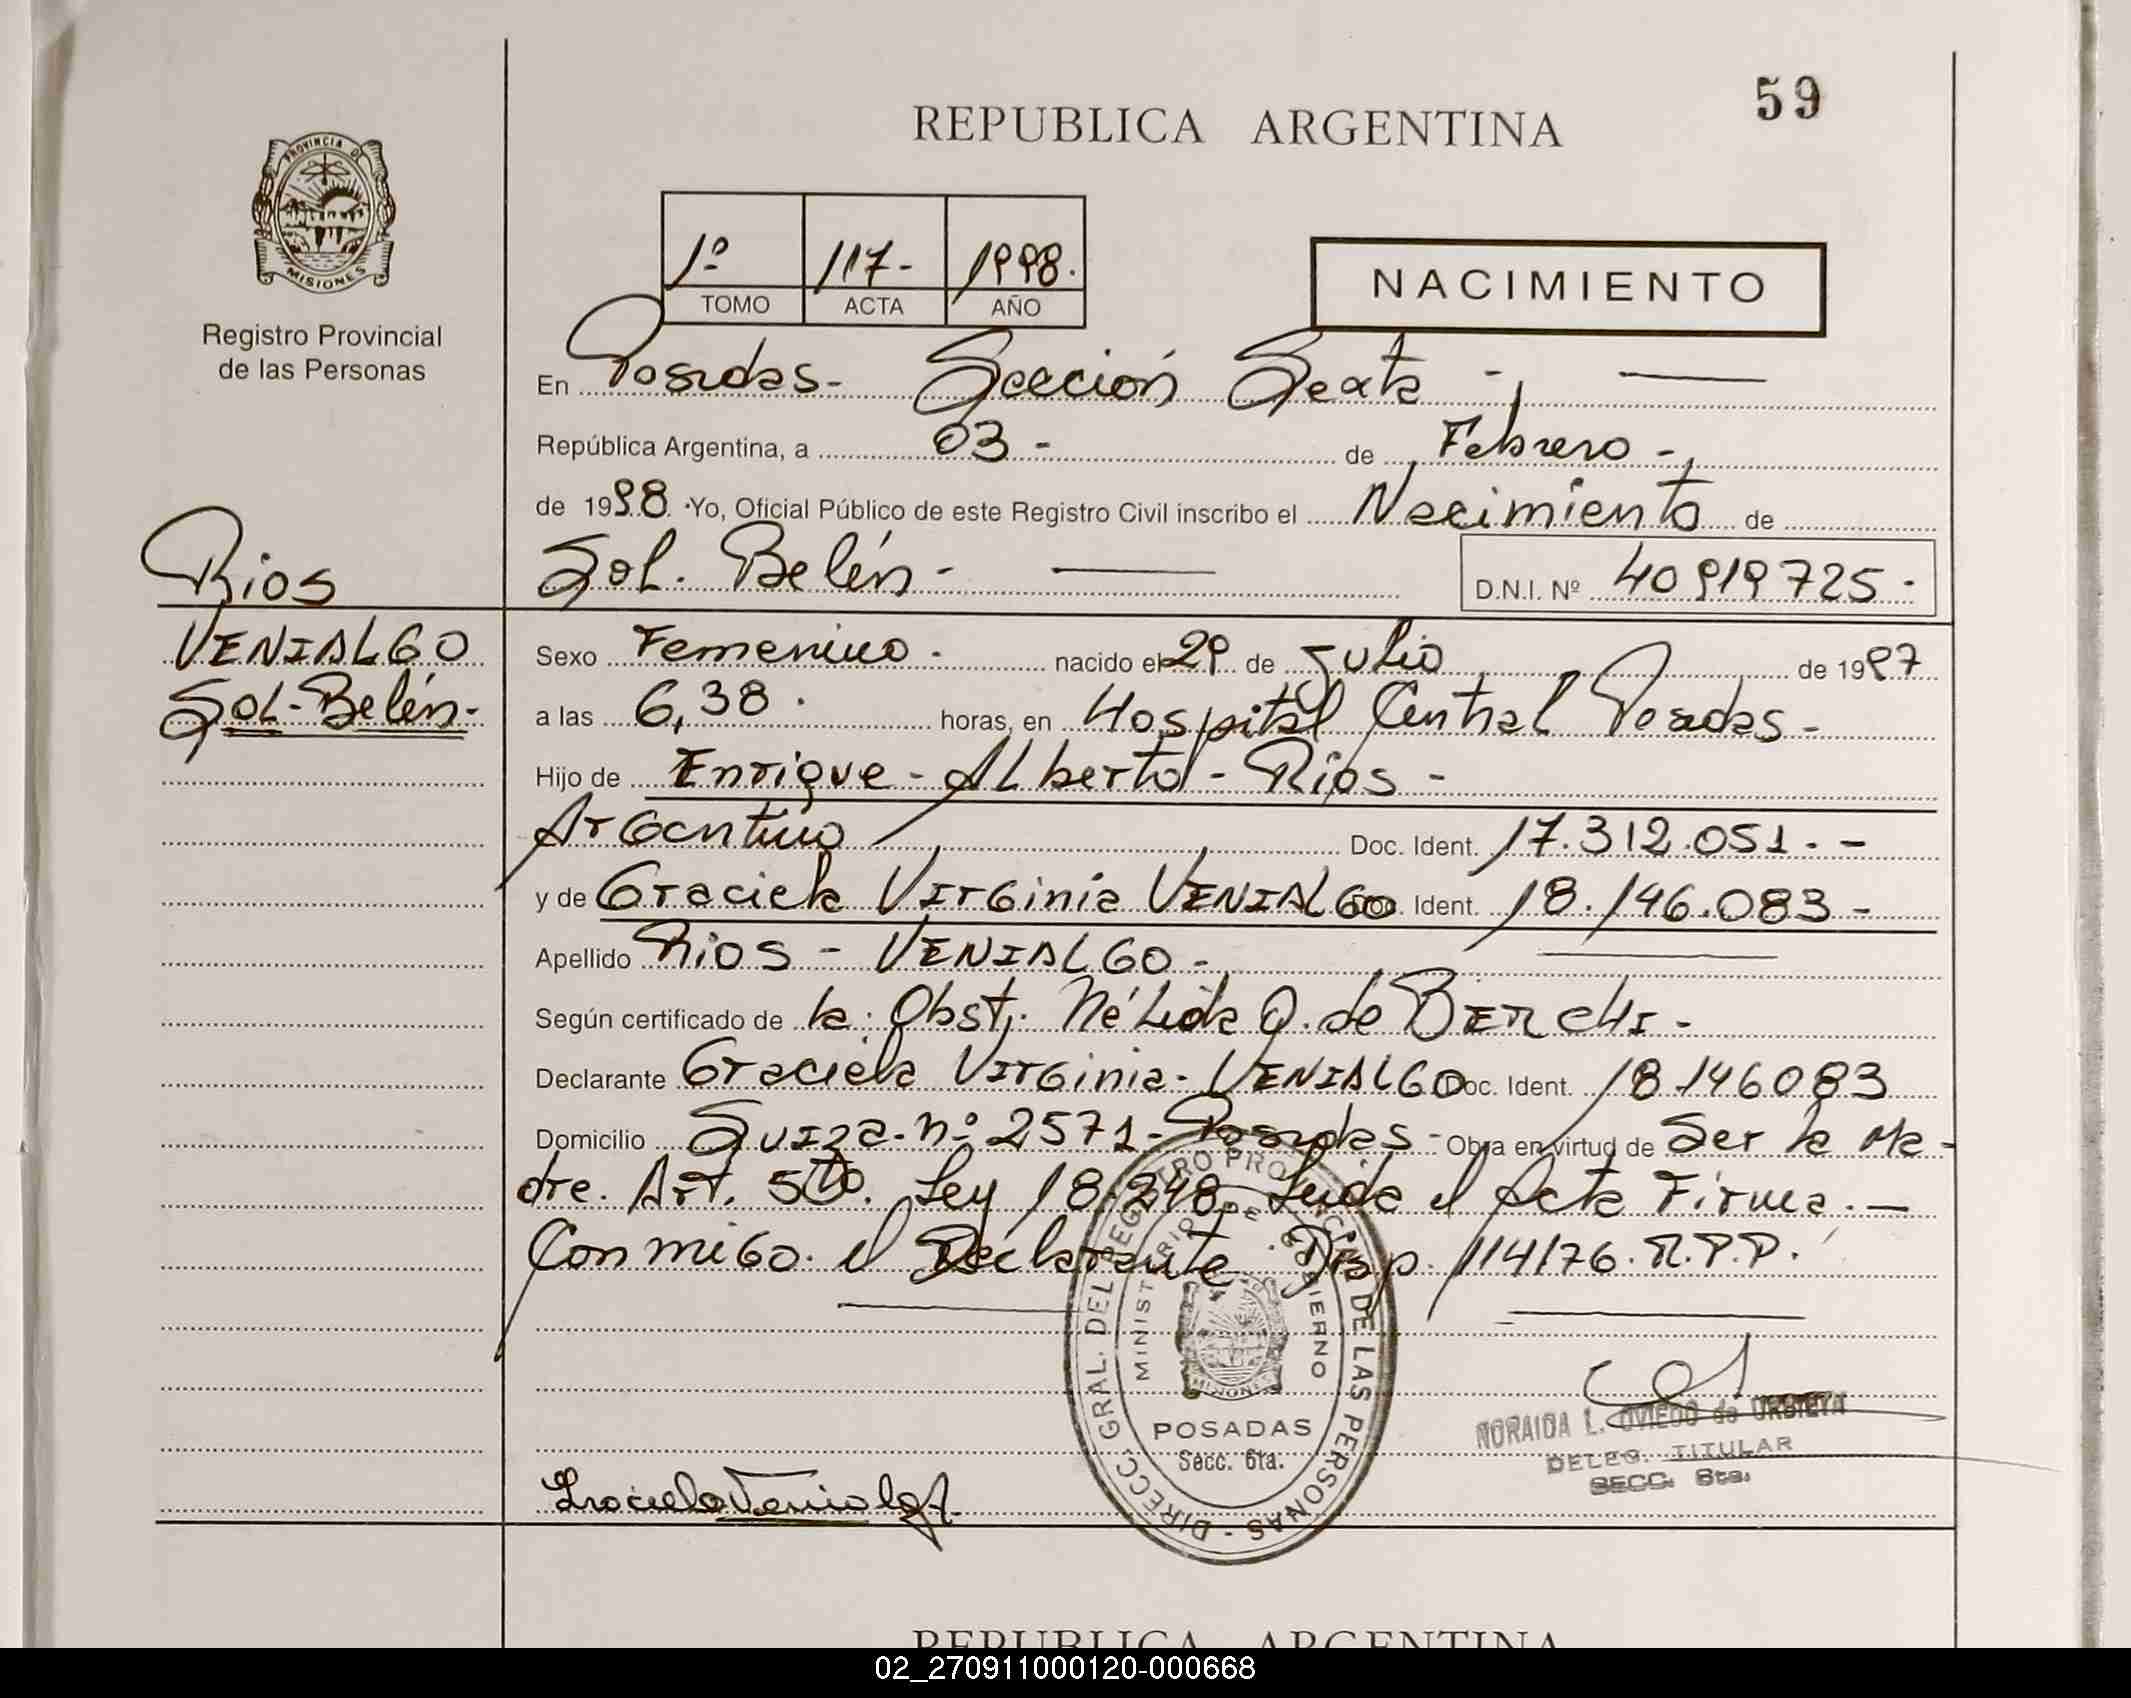 59
REPUBLICA ARGENTINA
PROVINCIA DE
MISIONES
Registro Provincial
de las Personas
1º 117- 1998.
TOMO ACTA AÑO
NACIMIENTO
En Posadas- Sección Sexta -
República Argentina, a 03 - de Febrero -
de 1998 Yo, Oficial Público de este Registro Civil inscribo el Nacimiento de
Sol. Belén - D.N.I. Nº 40919725.
Rios
VENIALGO
Sol-Belén-
Sexo Femenino. nacido el 29 de Julio de 1997
a las 6,38. horas, en Hospital Central Posadas-
Hijo de Enrique-Alberto-Rios-
Argentino Doc. Ident. 17.312.051.-
y de Graciela Virginia VENIALGO Doc. Ident. 18.146.083-
Apellido Rios - VENIALGO -
Según certificado de la. Obst. Nélida Q. de BERCHI-
Declarante Graciela Virginia- VENIALGO Doc. Ident. 18146083
Domicilio Suiza-nº 2571-Posadas- Obra en virtud de Ser la Ma-
dre. Art. 5to. Ley 18.248. Leida el Acta Firma.-
Conmigo. el Declarante. Disp. 114/76. R.P.P.
DIRECC. GRAL. DEL REGISTRO PROVINCIAL DE LAS PERSONAS -
MINISTERIO DE GOBIERNO
MISIONES
POSADAS
Secc. 6ta.
NORAIDA L. OVIEDO de
DELEG. TITULAR
SECC. 6ta.
Graciela Venialgo
REPUBLICA ARGENTINA
02_270911000120-000668